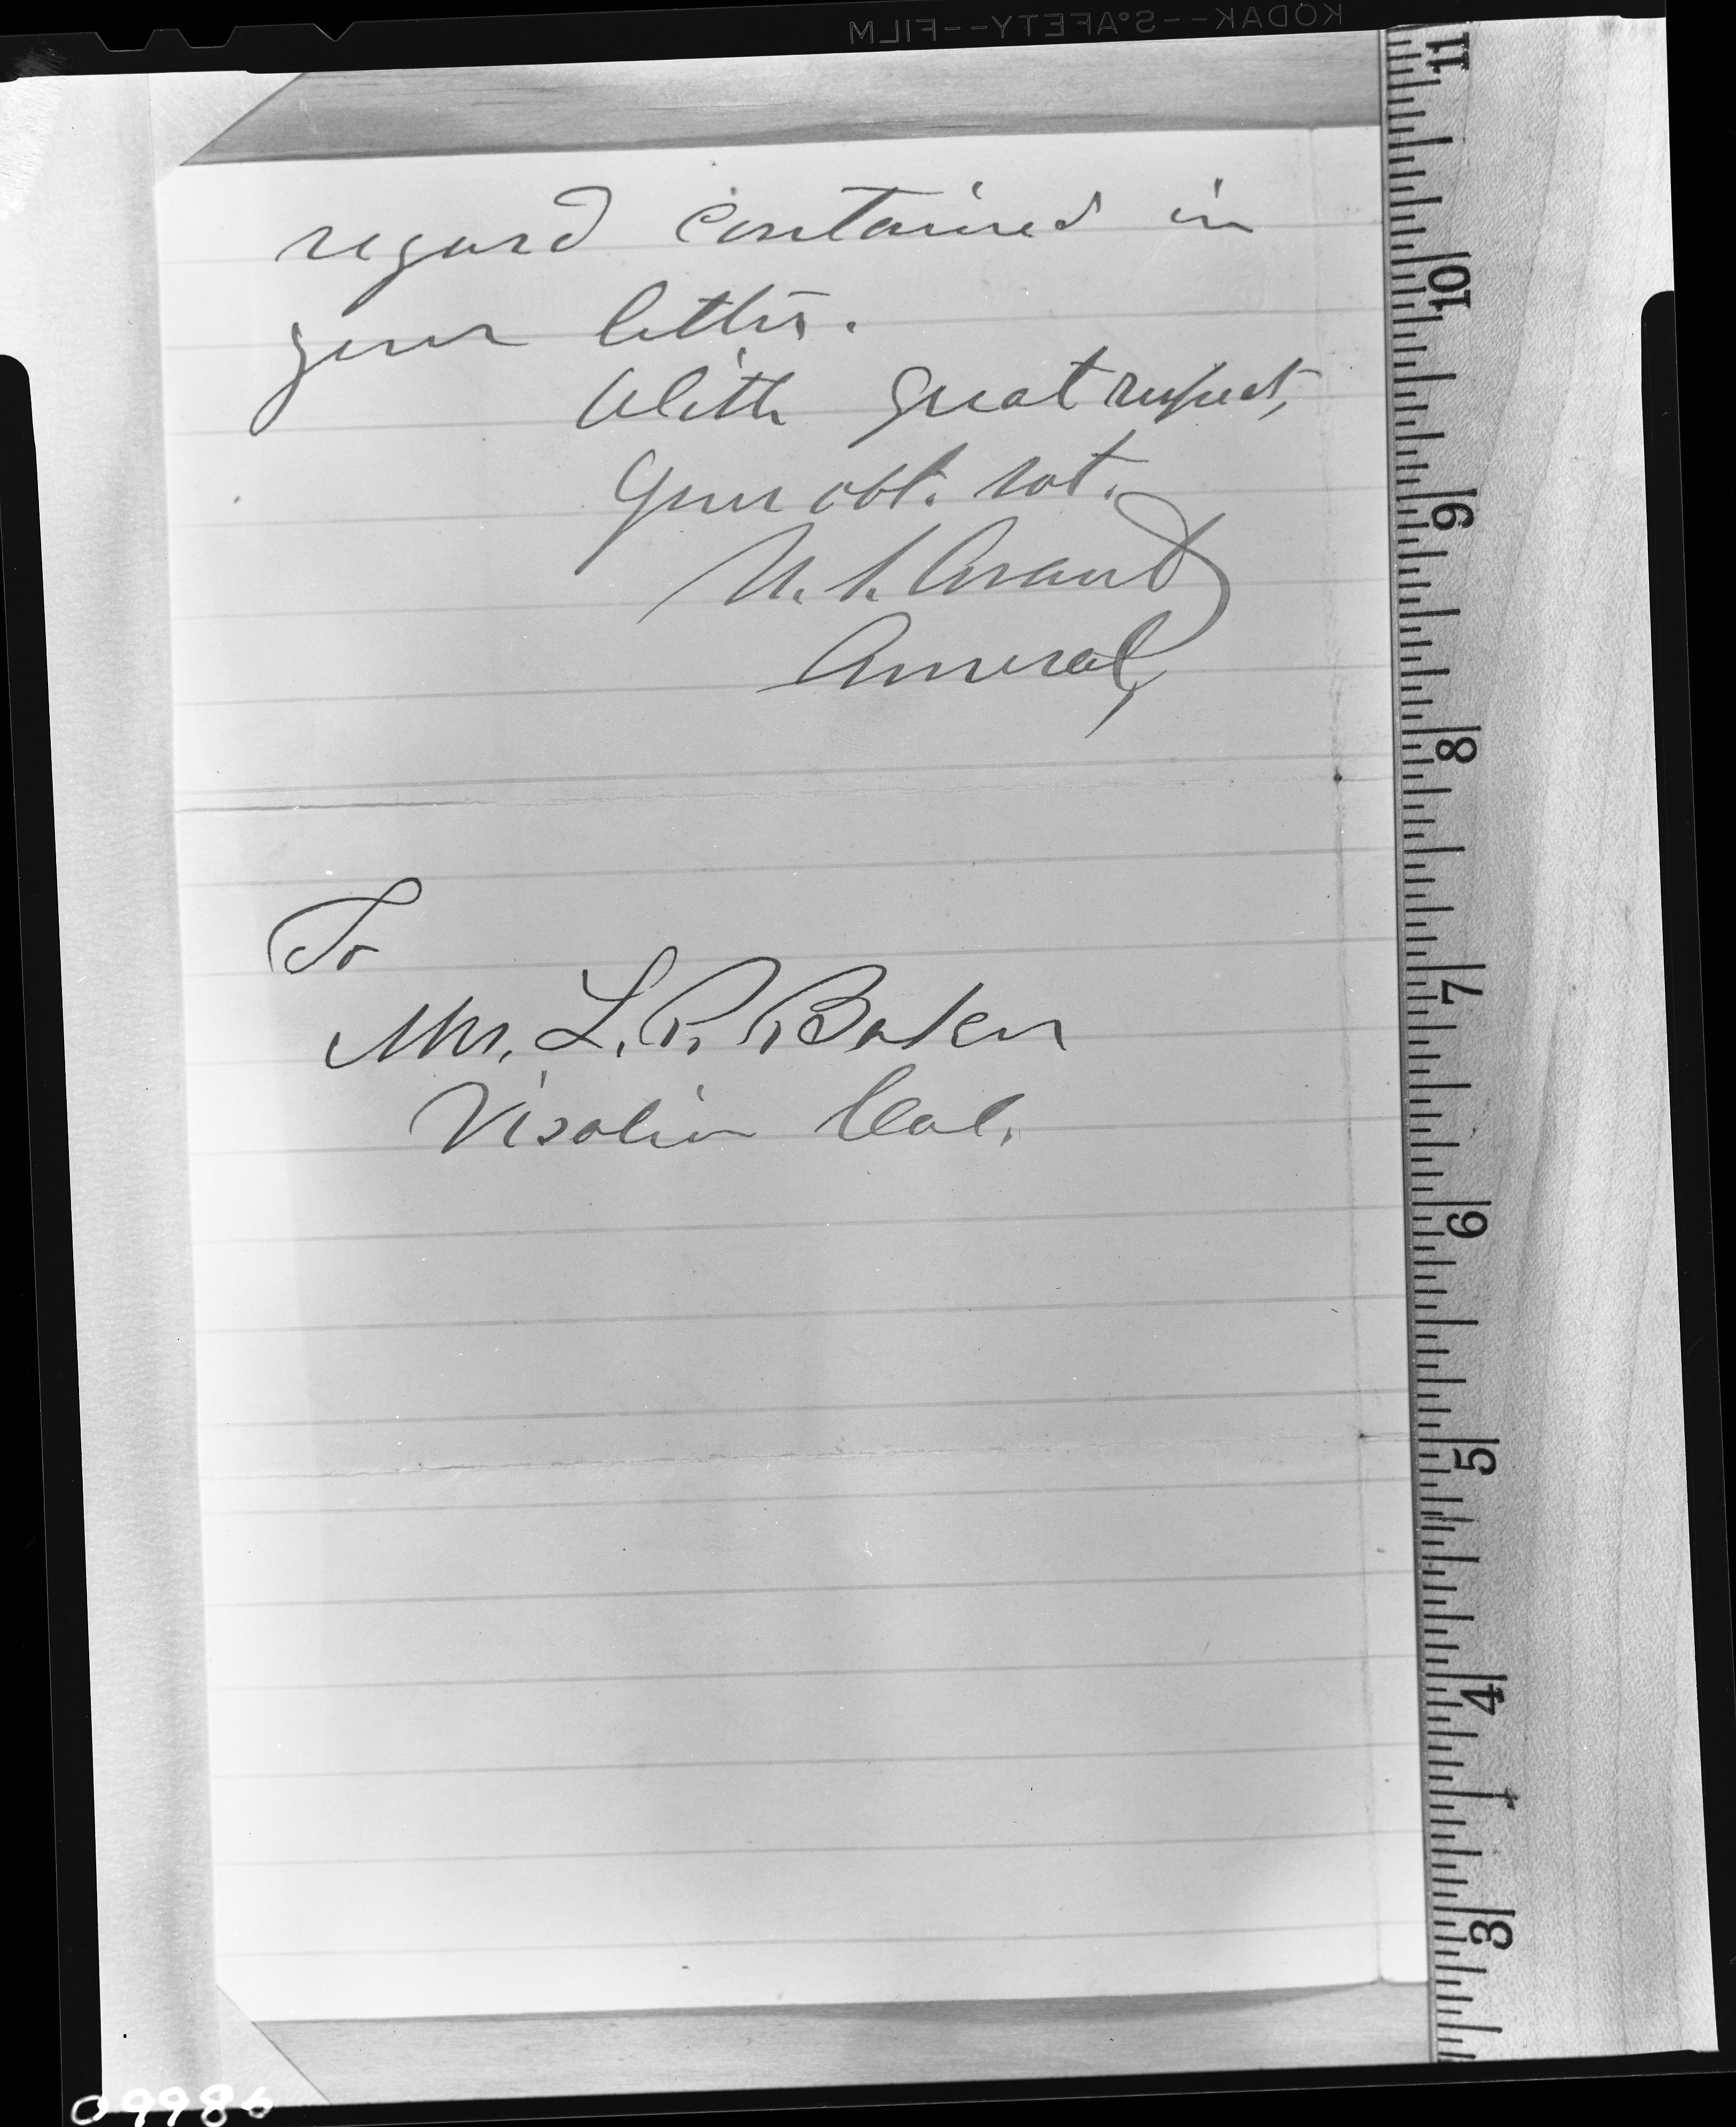 KODAK--S°AFETY--FILM
regard contained in
your letter.
With great respect,
Your obt. svt.
U. S. Grant
General,
To
Mrs. L. P. Baker
Visalia Cal.
11
10
9
8
7
6
5
4
3
09986